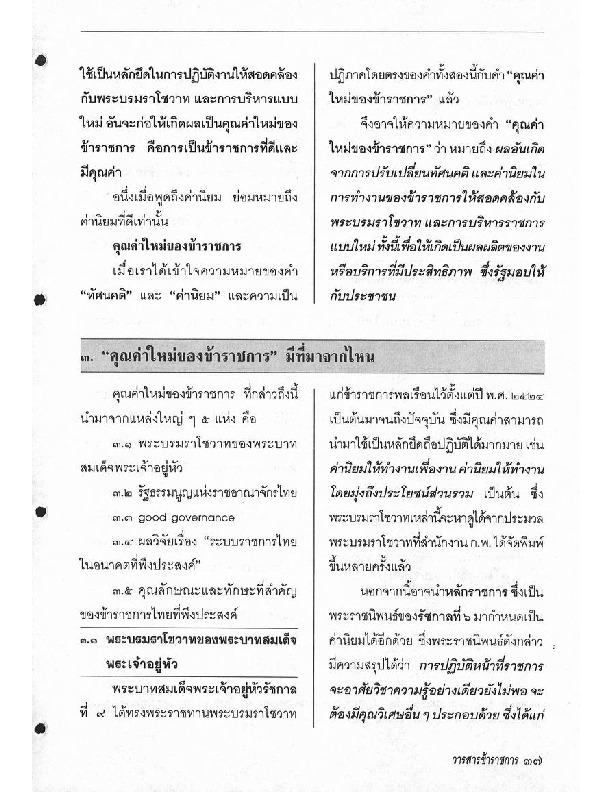 ใช้เป็นหลักยึดในการปฏิบัติงานให้สอดคล้อง
กับพระบรมราโชวาท และการบริหารแบบ
ใหม่ อันจะก่อให้เกิดผลเป็นคุณค่าใหม่ของ
ข้าราชการ คือการเป็นข้าราชการที่ดีและ
มีคุณค่า
อนึ่งเมื่อพูดถึงค่านิยม ย่อมหมายถึง
ค่านิยมที่ดีเท่านั้น
คุณค่าใหม่ของข้าราชการ
เมื่อเราได้เข้าใจความหมายของคำ
“ทัศนคติ” และ “ค่านิยม” และความเป็น
ปฏิภาคโดยตรงของคำทั้งสองนี้กับคำ “คุณค่า
ใหม่ของข้าราชการ” แล้ว
จึงอาจให้ความหมายของคำ “คุณค่า
ใหม่ของข้าราชการ” ว่า หมายถึง ผลอันเกิด
จากการปรับเปลี่ยนทัศนคติ และค่านิยมใน
การทำงานของข้าราชการให้สอดคล้องกับ
พระบรมราโชวาท และการบริหารราชการ
แบบใหม่ ทั้งนี้เพื่อให้เกิดเป็นผลผลิตของงาน
หรือบริการที่มีประสิทธิภาพ ซึ่งรัฐมอบให้
กับประชาชน
๓. “คุณค่าใหม่ของข้าราชการ” มีที่มาจากไหน
คุณค่าใหม่ของข้าราชการ ที่กล่าวถึงนี้
นำมาจากแหล่งใหญ่ ๆ ๕ แห่ง คือ
๓.๑ พระบรมราโชวาทของพระบาท
สมเด็จพระเจ้าอยู่หัว
๓.๒ รัฐธรรมนูญแห่งราชอาณาจักรไทย
๓.๓ good governance
๓.๔ ผลวิจัยเรื่อง “ระบบราชการไทย
ในอนาคตที่พึงประสงค์”
๓.๕ คุณลักษณะและทักษะที่สำคัญ
ของข้าราชการไทยที่พึงประสงค์
๓.๑ พระบรมราโชวาทของพระบาทสมเด็จ
พระเจ้าอยู่หัว
พระบาทสมเด็จพระเจ้าอยู่หัวรัชกาล
ที่ ๙ ได้ทรงพระราชทานพระบรมราโชวาท
แก่ข้าราชการพลเรือนไว้ตั้งแต่ปี พ.ศ. ๒๕๒๔
เป็นต้นมาจนถึงปัจจุบัน ซึ่งมีคุณค่าสามารถ
นำมาใช้เป็นหลักยึดถือปฏิบัติได้มากมาย เช่น
ค่านิยมให้ทำงานเพื่องาน ค่านิยมให้ทำงาน
โดยมุ่งถึงประโยชน์ส่วนรวม เป็นต้น ซึ่ง
พระบรมราโชวาทเหล่านี้จะหาดูได้จากประมวล
พระบรมราโชวาทที่สำนักงาน ก.พ. ได้จัดพิมพ์
ขึ้นหลายครั้งแล้ว
นอกจากนี้อาจนำหลักราชการ ซึ่งเป็น
พระราชนิพนธ์ของรัชกาลที่ ๖ มากำหนดเป็น
ค่านิยมได้อีกด้วย ซึ่งพระราชนิพนธ์ดังกล่าว
มีความสรุปได้ว่า การปฏิบัติหน้าที่ราชการ
จะอาศัยวิชาความรู้อย่างเดียวยังไม่พอ จะ
ต้องมีคุณวิเศษอื่น ๆ ประกอบด้วย ซึ่งได้แก่
วารสารข้าราชการ ๓๗